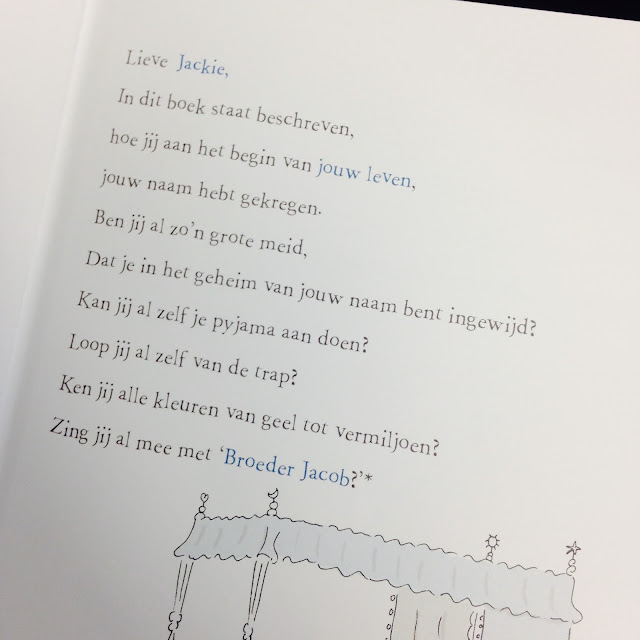 Lieve Jackie,
In dit boek staat beschreven,
hoe jij aan het begin van jouw leven,
jouw naam hebt gekregen.
Ben jij al zo'n grote meid,
Dat je in het geheim van jouw naam bent ingewijd?
Kan jij al zelf je pyjama aan doen?
Loop jij al zelf van de trap?
Ken jij alle kleuren van geel tot vermiljoen?
Zing jij al mee met 'Broeder Jacob?'*